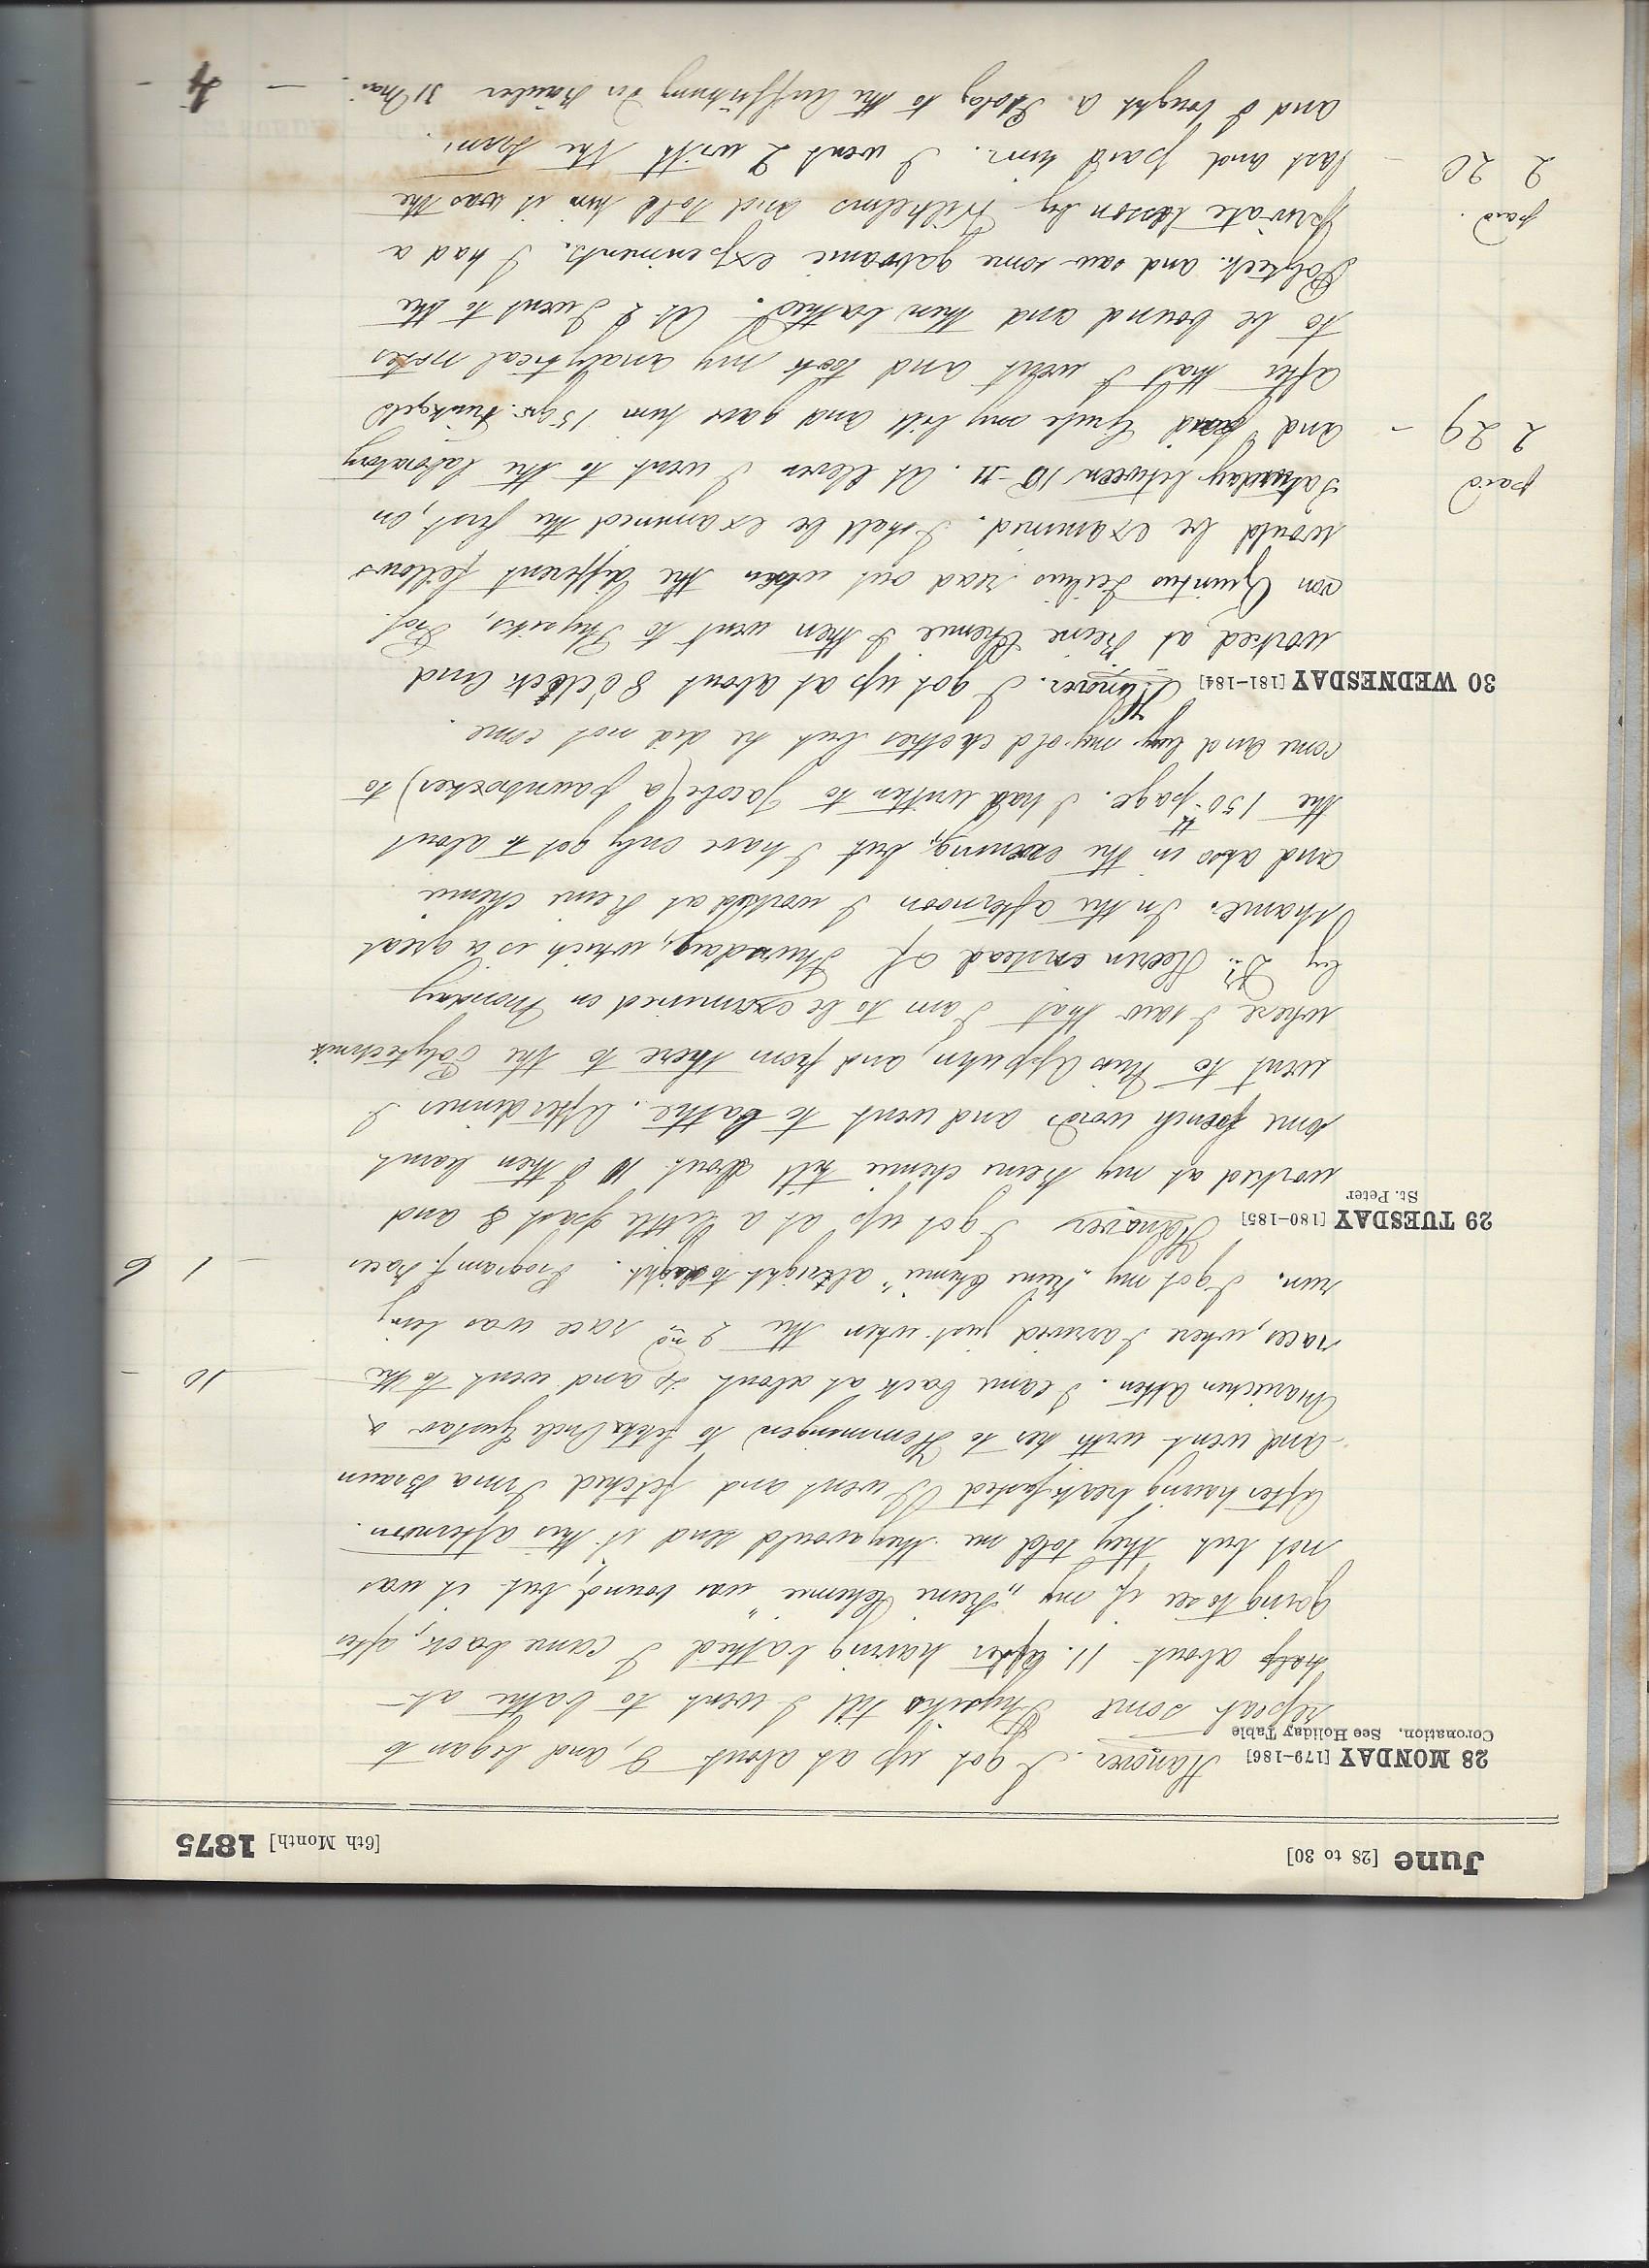 June [28 to 30] [6th Month] 1875
28 MONDAY [179-186] Hanover. I got up at about 9, and began to
Coronation. See Holiday Table
repeat some Physiks till I went to bathe at
half about 11. After having bathed I came back, after
going to see if my „Reine Chemie" was bound, but it was
not but they told me they would send it this afternoon.
After having breakfasted I went and fetched Anna Braun
and went with her to Hemmingen to fetch Uncle Gustav &
Mariechen Atten. I came back at about and went to the — 10 -
races, where I arrived just when the 2nd race was being
run. I got my „Reine Chemie" allright to night. Program f. Races — 1 6
29 TUESDAY [180-185] Hanover I got up at a little past 8 and
St. Peter
worked at my Reine Chemie till about 10 I then learnt
some french words and went to bathe. After dinner I
went to Miss Appuhn, and from there to the Polytechnik
where I saw that I am to be examined on Monday
by Dr. Heeren instead of Thursday, which is a great
shame. In the afternoon I worked at Reine Chemie
and also in the evening, but I have only got to about
the 150th page. I had written to Jacobi (a pawnbroker) to
come and buy my old clothes but he did not come.
30 WEDNESDAY [181-184] Hanover. I got up at about 8 o'clock and
worked at Reine Chemie I then went to Physiks, Prof.
von Quintus Icilius read out when the different fellows
would be examined. I shall be examined the first, on
Saturday between 10-11. At eleven I went to the laboratory
paid 2 29 - and paid Grube my bill and gave him 15 gr. Trinkgeld
after that I went and took my analytical notes
to be bound and then bathed. At 2 I went to the
Polytech. and saw some galvanic experiments. I had a
paid. private lesson by Wilhelms and told him it was the
2 20 - last and paid him. I went 2 with the tram.
and I bought a Platz to the Aufführung der Räuber — 4 -